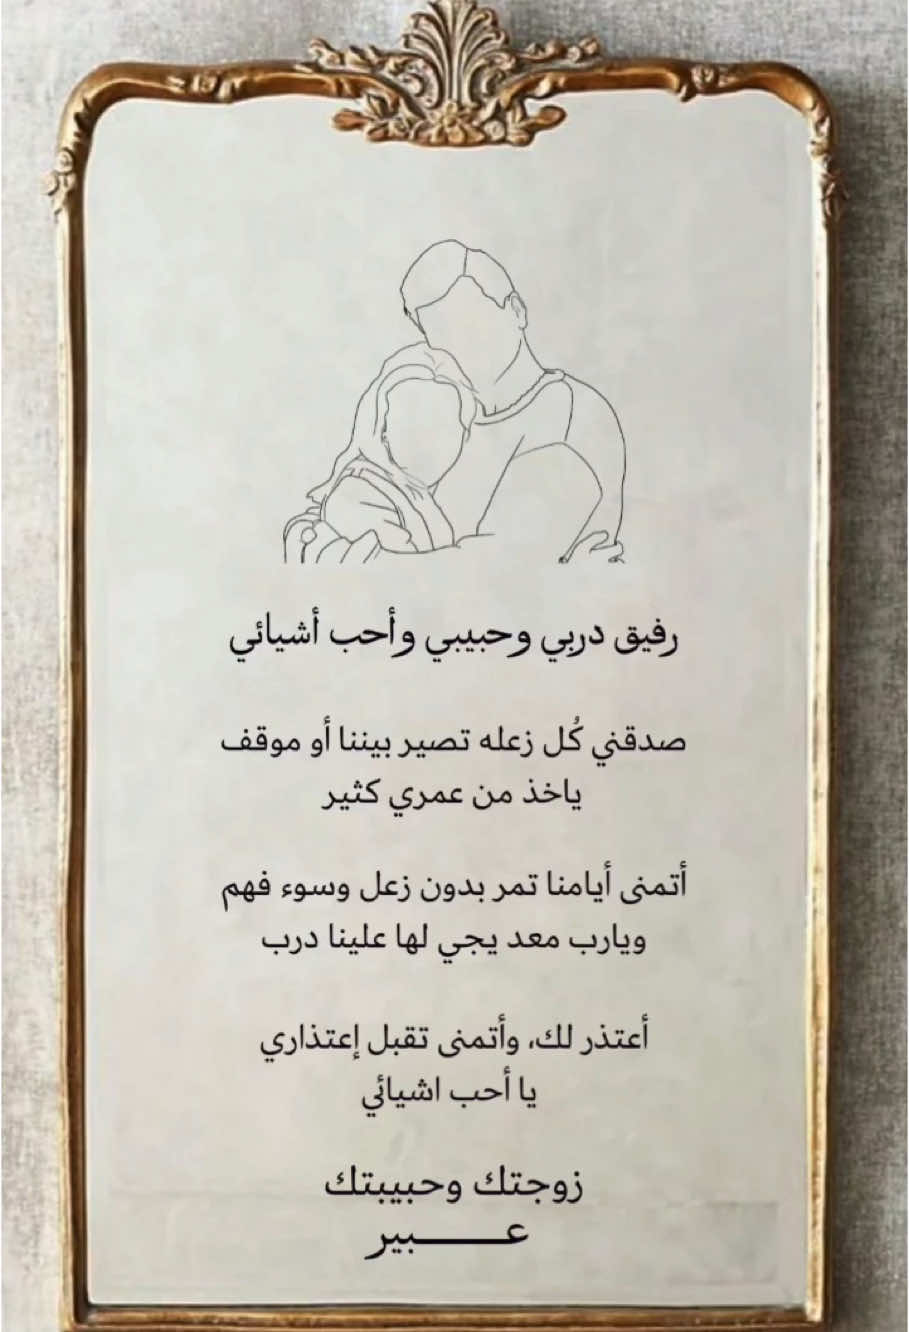 رفيق دربي وحبيبي وأحب أشيائي
صدقني كُل زعله تصير بيننا أو موقف
ياخذ من عمري كثير
أتمنى أيامنا تمر بدون زعل وسوء فهم
ويارب معد يجي لها علينا درب
أعتذر لك، وأتمنى تقبل إعتذاري
يا أحب اشيائي
زوجتك وحبيبتك
عـــــبير